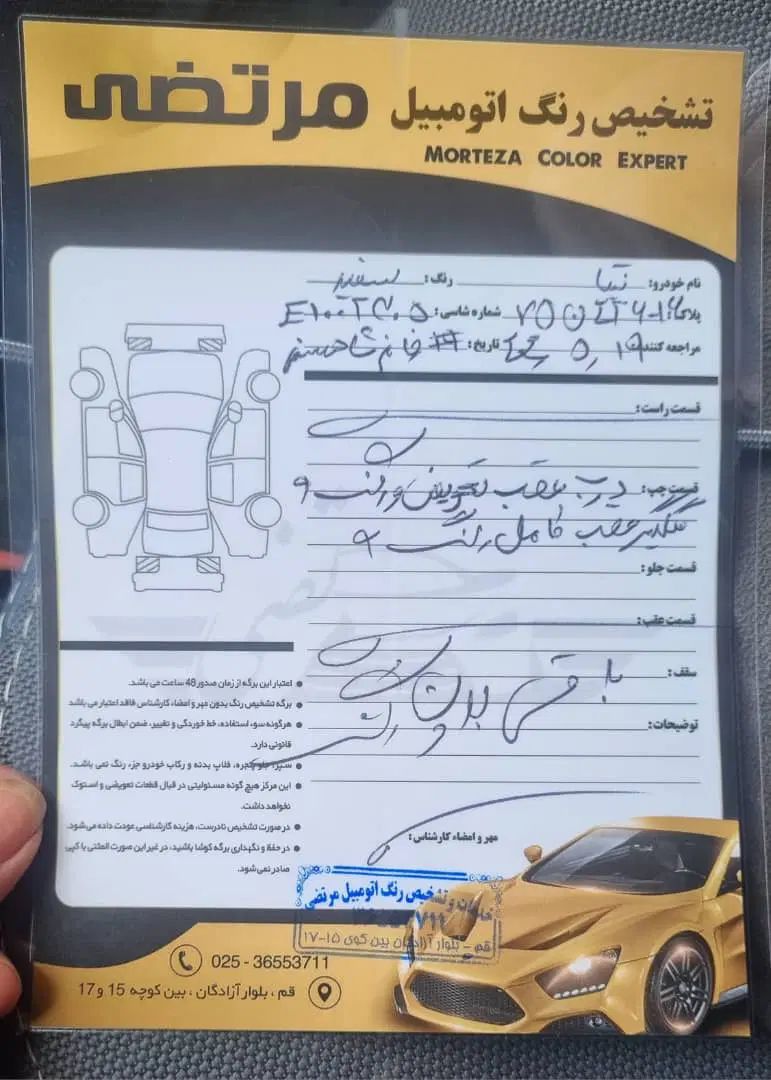 تشخیص رنگ اتومبیل مرتضی
MORTEZA COLOR EXPERT
نام خودرو: تیبا رنگ: سفید
پلاک: شماره شاسی:
مراجعه کننده: تاریخ: خانم
قسمت راست:
قسمت چپ: درب عقب تعویض و رنگ و
گلگیر عقب کامل رنگ و
قسمت جلو:
قسمت عقب:
سقف:
توضیحات: باقی بدون رنگ
اعتبار این برگه از زمان صدور 48 ساعت می باشد.
برگه تشخیص رنگ بدون مهر و امضاء کارشناس فاقد اعتبار می باشد
هرگونه سوء استفاده، خط خوردگی و تغییر، ضمن ابطال برگه پیگرد
قانونی دارد.
سپر، جلو پنجره، فلاپ بدنه و رکاب خودرو جزء رنگ نمی باشد.
این مرکز هیچ گونه مسئولیتی در قبال قطعات تعویضی و استوک
نخواهد داشت.
در صورت تشخیص نادرست، هزینه کارشناسی عودت داده می شود.
در حفظ و نگهداری برگه کوشا باشید، در غیر این صورت المثنی یا کپی
صادر نمی شود.
مهر و امضاء کارشناس:
خدمات و تشخیص رنگ اتومبیل مرتضی
قم - بلوار آزادگان بین کوی ۱۵-۱۷
025 - 36553711
قم ، بلوار آزادگان ، بین کوچه 15 و 17